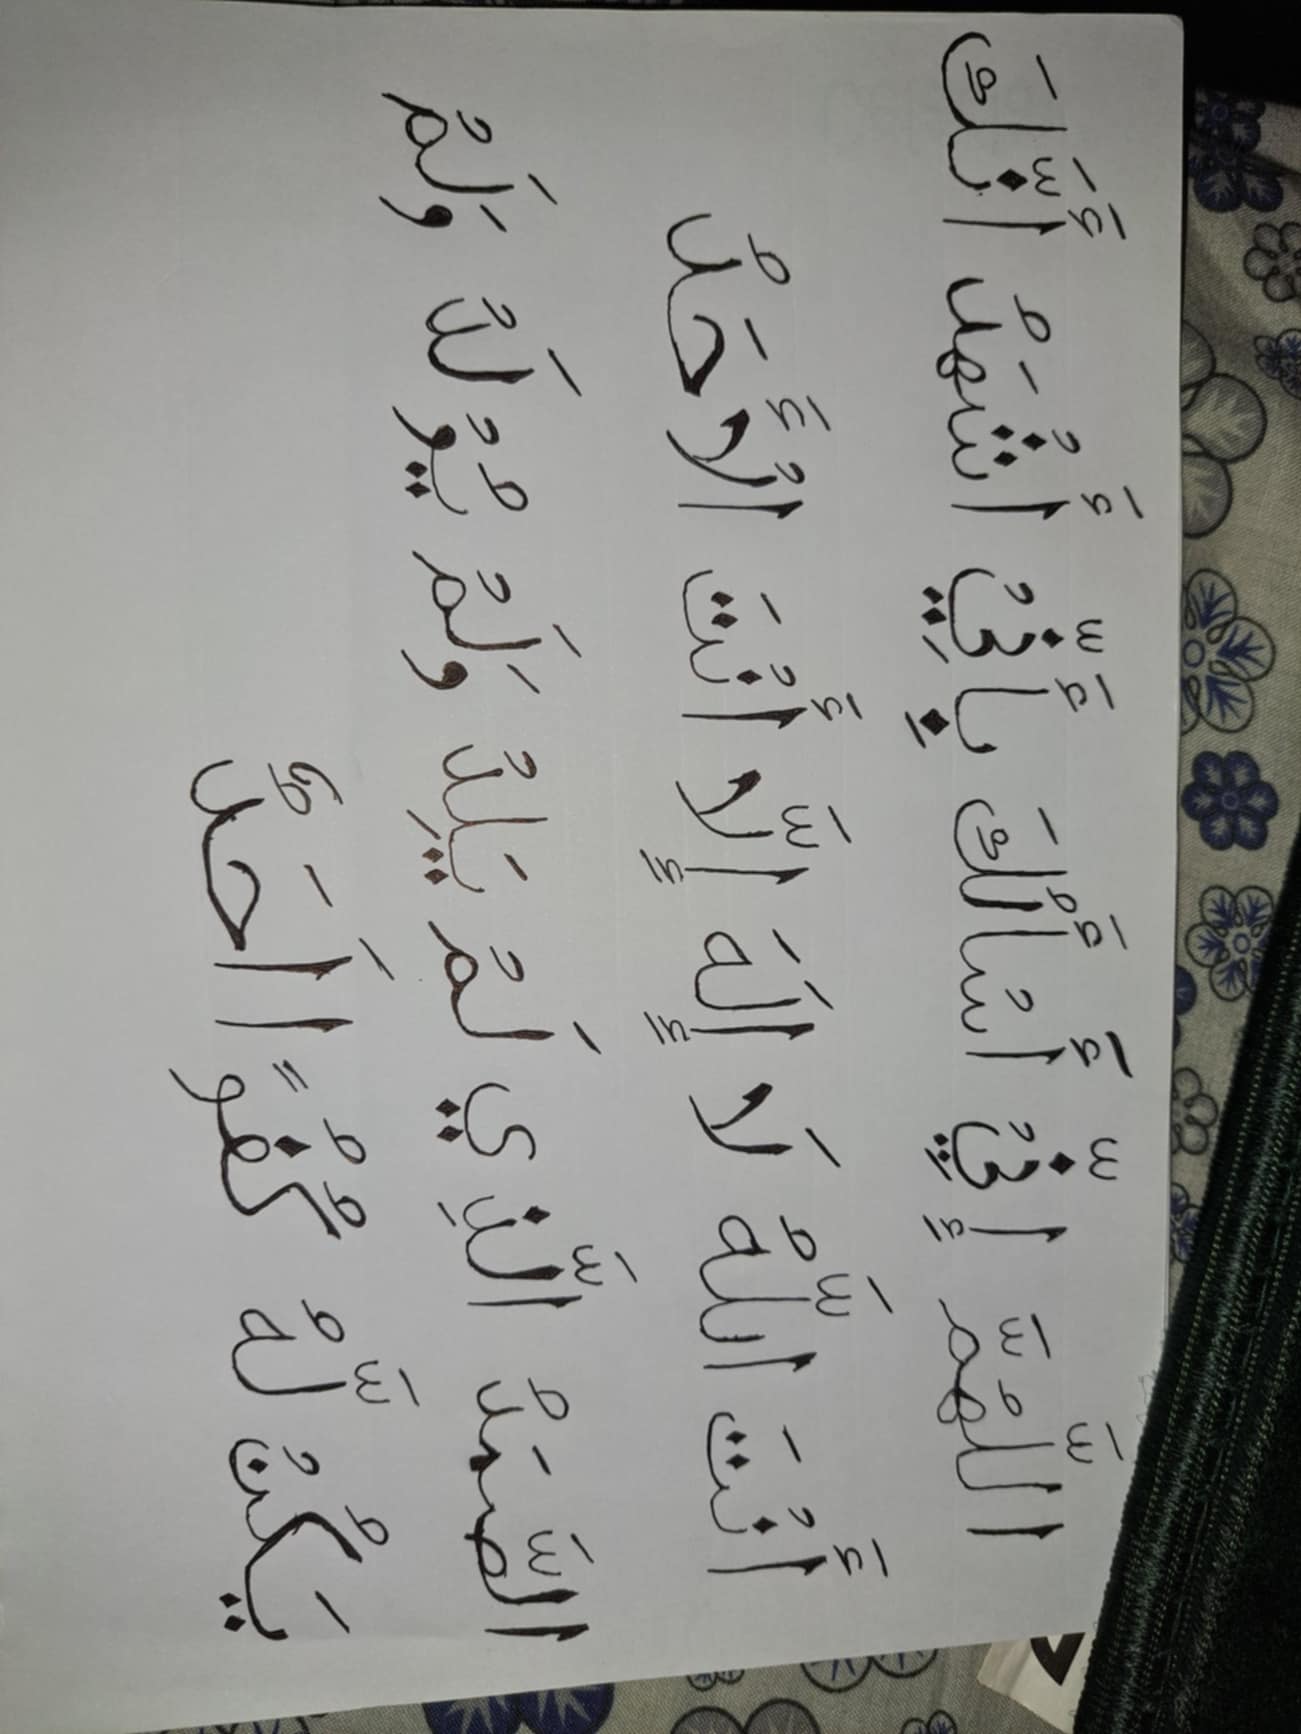 اللَّهُمَّ إِنِّيْ أَسْأَلُكَ بِأَنِّيْ أَشْهَدُ أَنَّكَ
أَنْتَ اللَّهُ لَا إِلَهَ إِلَّا أَنْتَ الْأَحَدُ
الصَّمَدُ الَّذِي لَمْ يَلِدْ وَلَمْ يُوْلَدْ وَلَمْ
يَكُنْ لَّهُ كُفُوًا اَحَدٌ